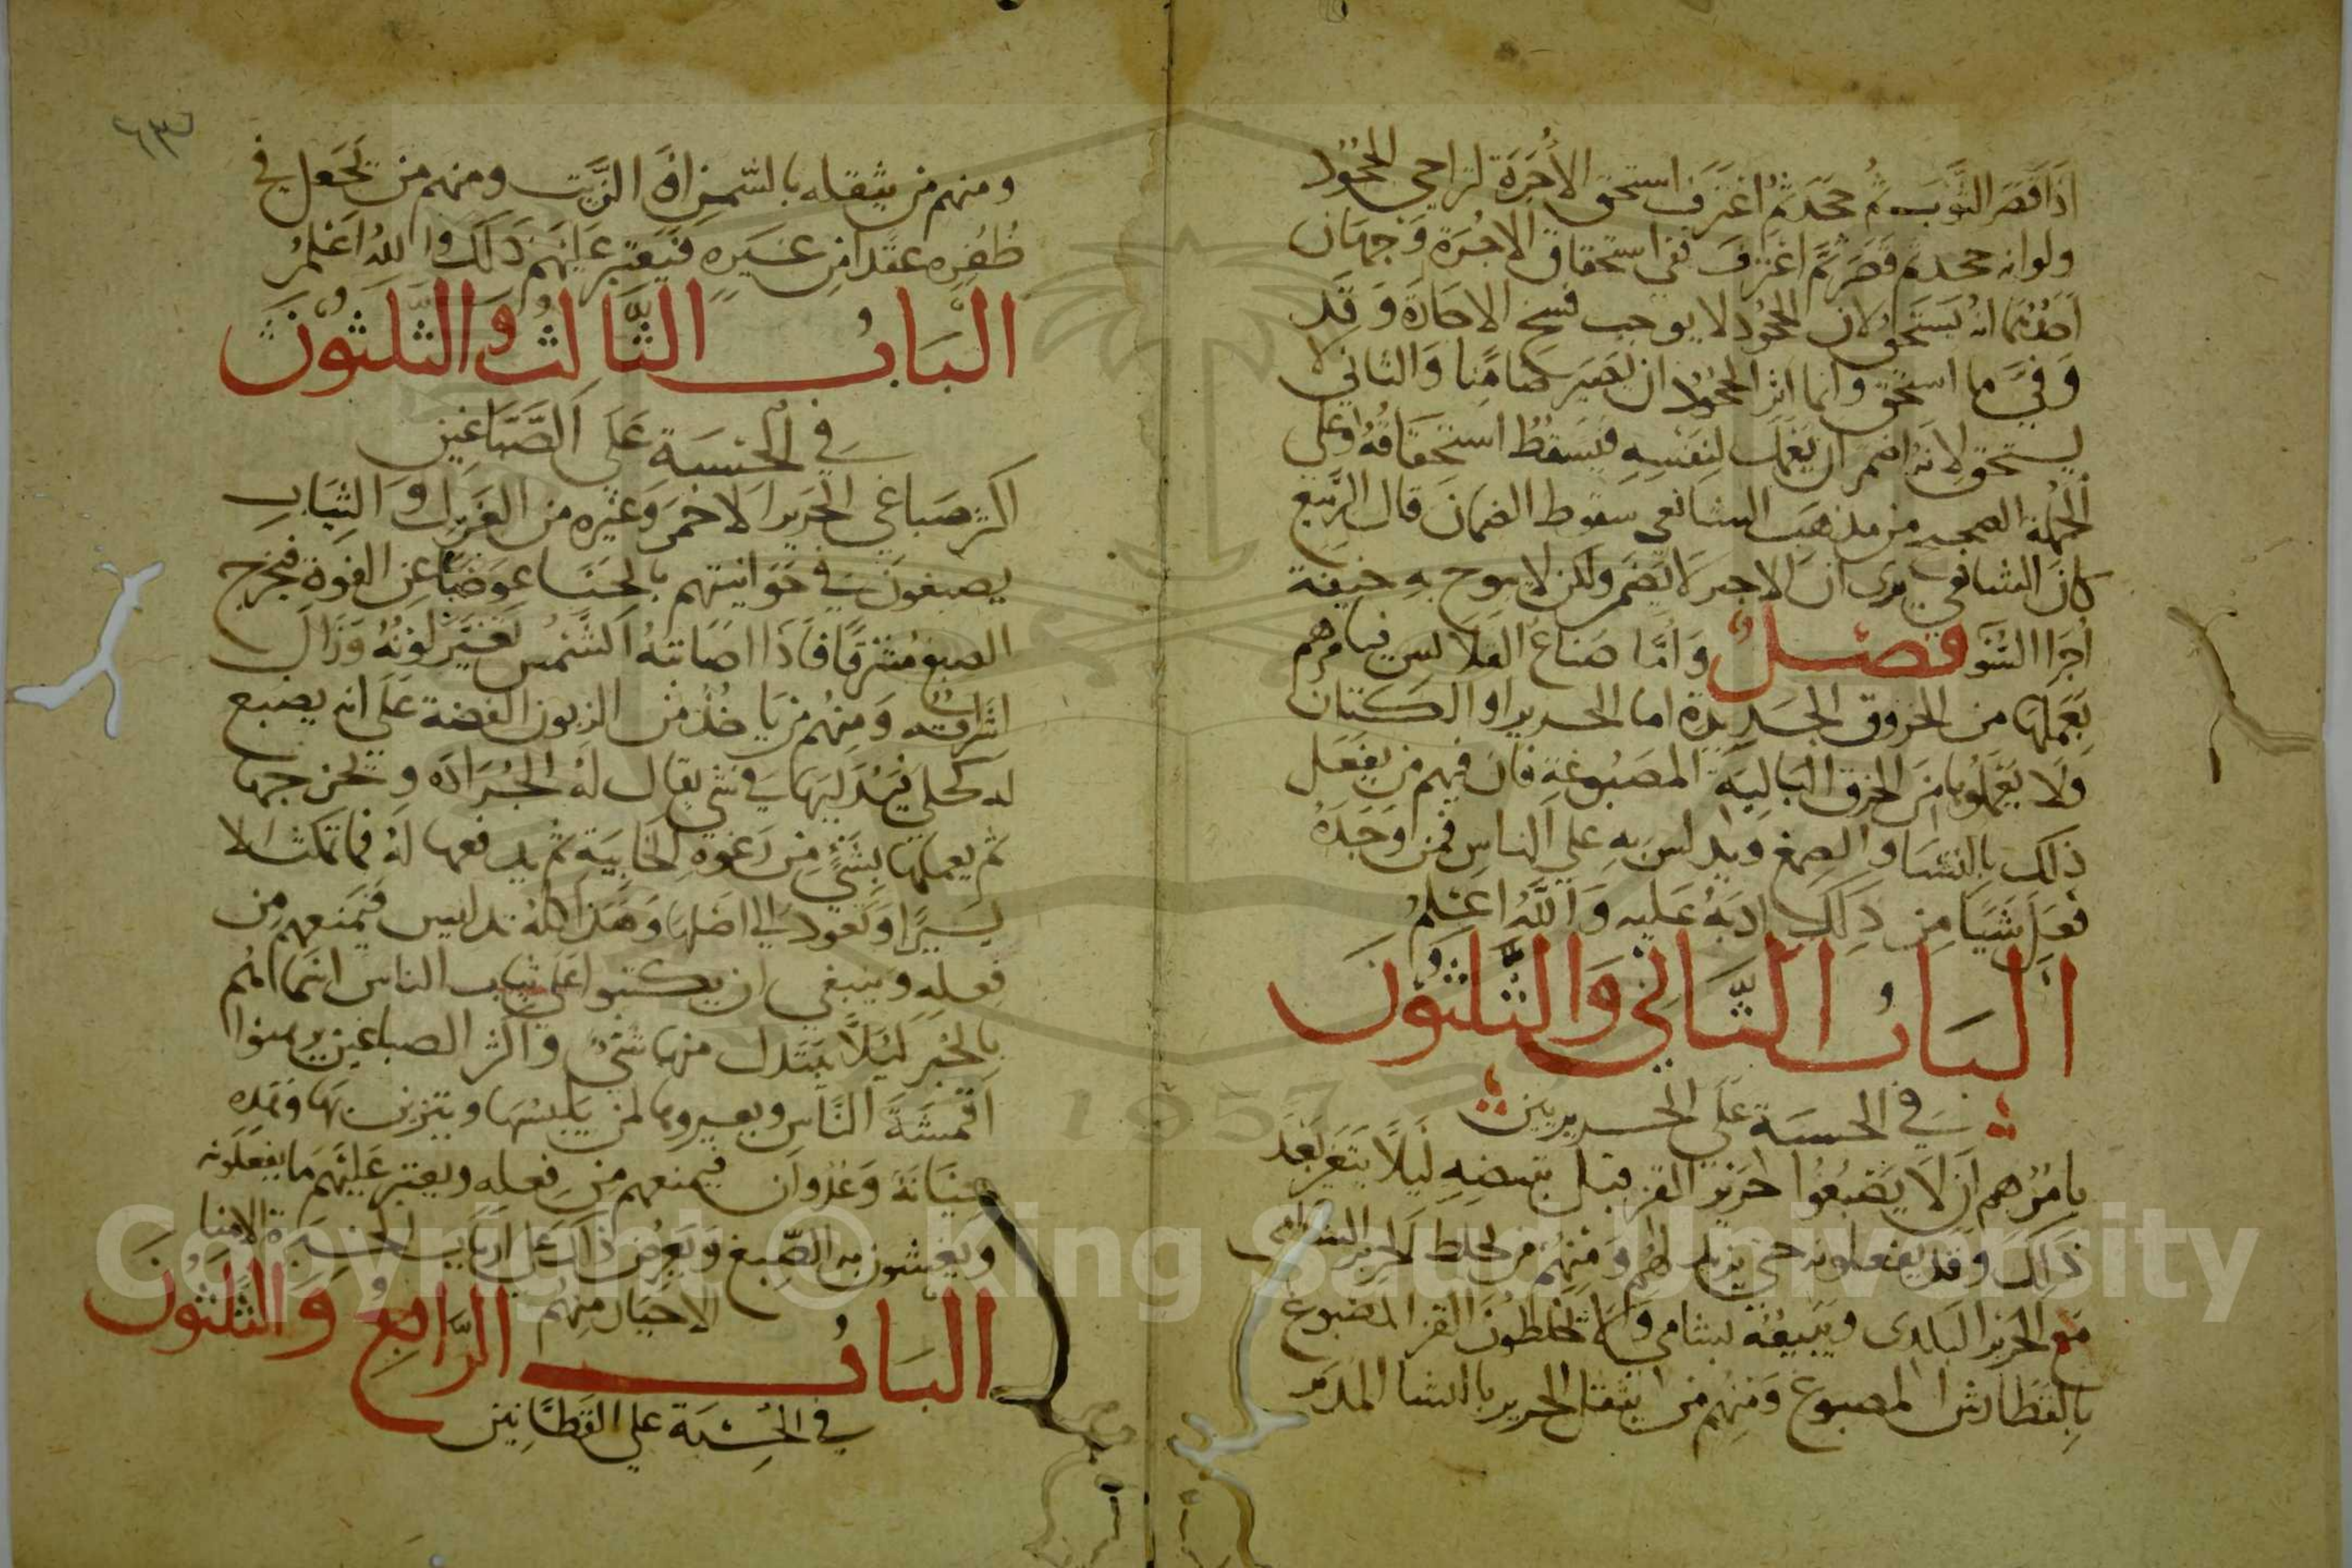 اذا قصر الثوب ثم جحد ثم اعترف استحق الاجرة لزاحى الجحود
ولوانه جحد ثم قصر ثم اعترف ففى استحقاق الاجرة وجهان
احدهما انه يستحق لان الجحود لا يوجب فسخ الاجارة وقد
وفىّ ما استحق وانما اثر الجحود ان يصير ضامنا والثانى لا
يستحق لانه اضمر ان يعمل لنفسه فيسقط استحقاقه وعلى
الجملة الصحيح من مذهب الشافعى سقوط الضمان قال الربيع
كان الشافعى يرى ان الاجير لا يضمن ولكن لا يبوح به خيفة
اجرا السوء فصل واما صناع القلانس فيامرهم
بعملها من الخروق الجديدة اما الحرير او الكتان
ولا يعملوها من الخرق البالية المصبوغة فان فيهم من يفعل
ذلك بالنشا والصمغ ويدلس به على الناس فمن وجده
فعل شيا من ذلك ادبه عليه والله اعلم
الباب الثانى والثلثون
فى الحسبة على الحريريين
يامرهم ان لا يصبغوا حرير القز قبل تبيضه ليلا يتغير بعد
ذلك وقد يفعلونه حتى يزيد لهم ومنهم من يخلط الحرير الشامى
مع الحرير البلدى ويبيعه بشامى ولا يخلطون القز المصبوغ
بالقطارش المصبوغ ومنهم من يثقل الحرير بالنشا المدبر
٦٣
ومنهم من يثقله بالسمن او الزيت ومنهم من يجعل فى
ظفره عقدا من غيره فيعتبر عليهم ذلك والله اعلم
الباب الثالث والثلثون
فى الحسبة على الصباغين
اكثر صباغى الحرير الاحمر وغيره من الغزل والثياب
يصبغون فى حوانيتهم بالحنا عوضا عن الفوة فيخرج
الصبغ مشرقا فاذا اصابته الشمس تغير لونه وزال
اشراقه ومنهم من ياخذ من الزبون الفضة على انه يصبغ
له كحلى فيدليها فى شى يقال له الجرادة ويخرجها
ثم يعملها بشى من رغوة الخابية ثم يدفعها له فما تمكث الا
يسيرا وتعود الى اصلها وهذا كله تدليس فيمنعهم من
فعله وينبغى ان يكتبوا على ثياب الناس اسماهم
بالحبر ليلا يتبدل منها شى واكثر الصباغين يرهنوا
اقمشة الناس ويعيروها لمن يلبسها ويتزين بها وهذه
خيانة وعدوان فيمنعهم من فعله ويعتبر عليهم ما يفعلونه
ويغشون به الصبغ ويعرض ذلك على ارباب الخبرة الامنا
الاخيار منهم
الباب الرابع والثلثون
فى الحسبة على القطانين
Copyright © King Saud University
1957